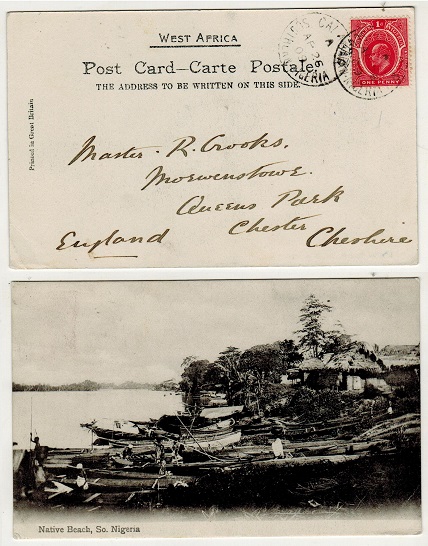 WEST AFRICA
Post Card—Carte Postale
THE ADDRESS TO BE WRITTEN ON THIS SIDE.
ONE PENNY
Printed in Great Britain
Master. R. Crooks.
Morwenstowe.
Queens Park
Chester
England Cheshire
Native Beach, So. Nigeria